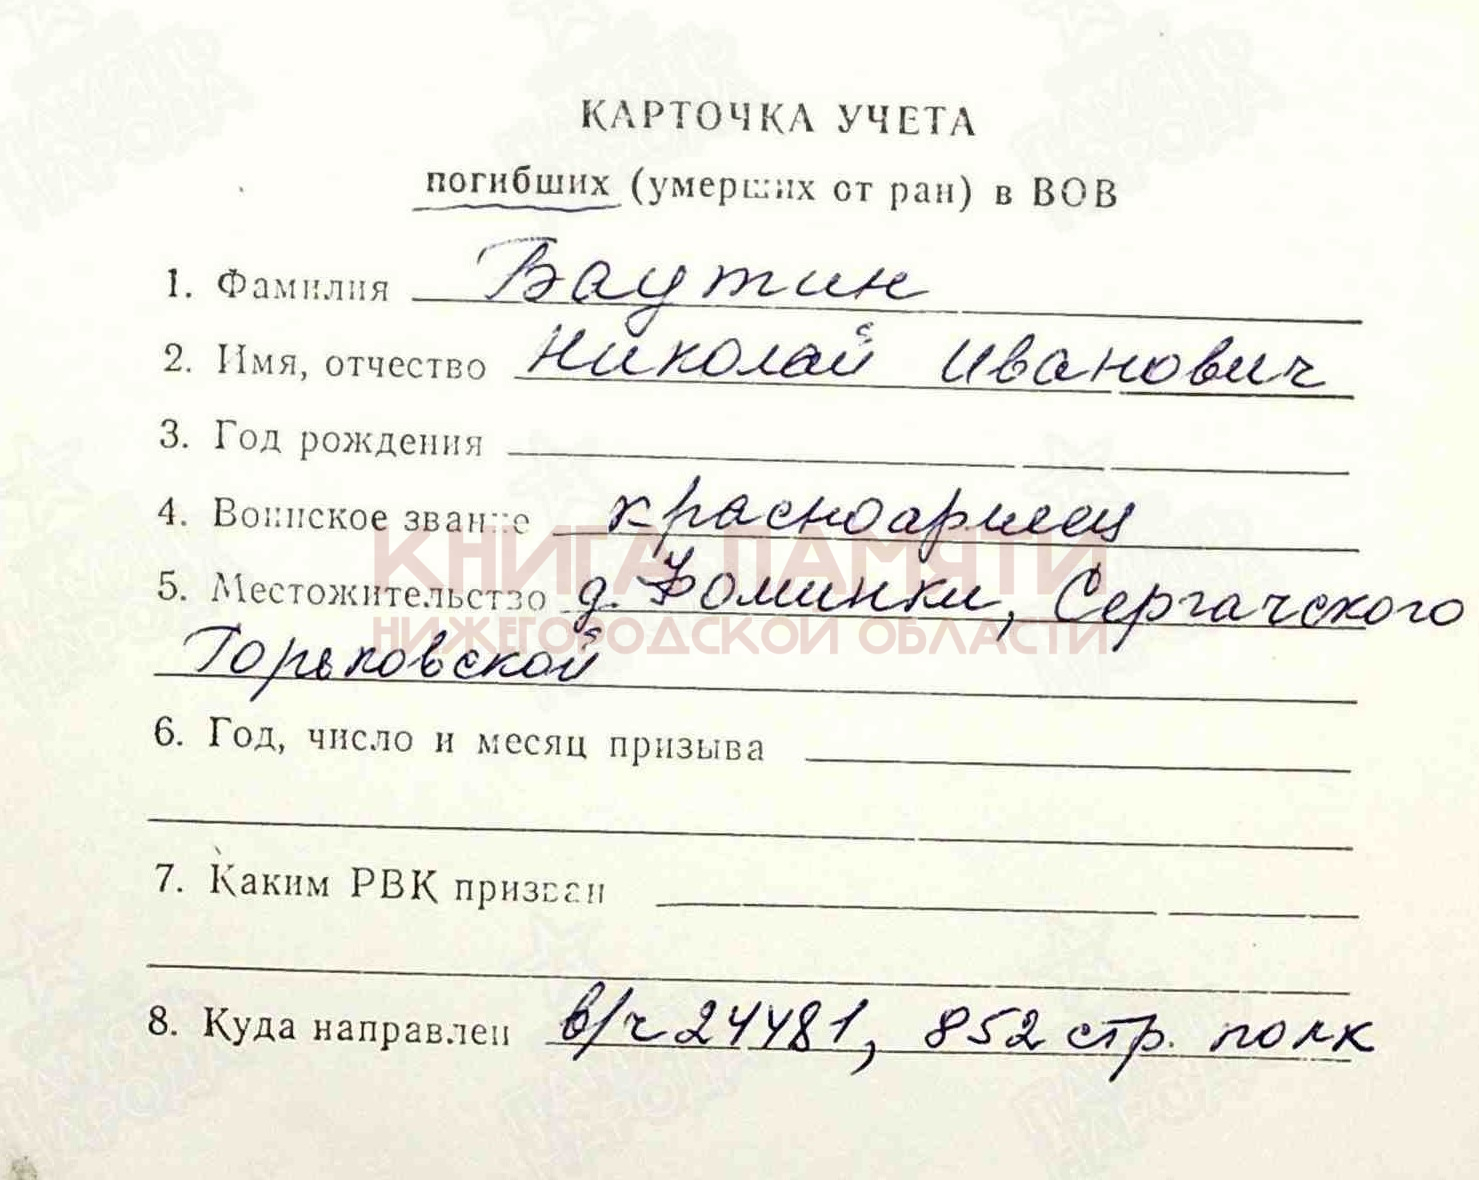 КАРТОЧКА УЧЕТА
погибших (умерших от ран) в ВОВ
1. Фамилия Ваутин
2. Имя, отчество Николай Иванович
3. Год рождения
4. Воинское звание красноармеец
5. Местожительство д. Фоминки, Сергачского
Горьковской
6. Год, число и месяц призыва
7. Каким РВК призван
8. Куда направлен в/ч 24481, 852 стр. полк
КНИГА ПАМЯТИ
НИЖЕГОРОДСКОЙ ОБЛАСТИ